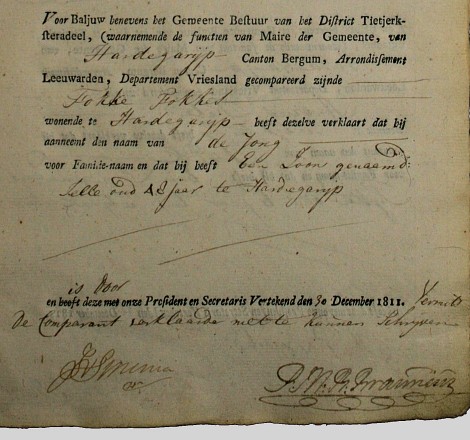 Voor Baljuw benevens het Gemeente Bestuur van het District Tietjerk-
steradeel, (waarnemende de functien van Maire der Gemeente, van
Hardegarijp Canton Bergum, Arrondissement
Leeuwarden, Departement Vriesland gecompareerd zijnde
Fokke Fokkes
wonende te Hardegarijp heeft dezelve verklaart dat hij
aanneemt den naam van de Jong
voor Familie-naam en dat hij heeft Een Zoon genaamd:
Jelle oud 42 jaar te Hardegarijp
is door
en heeft deze met onze President en Secretaris Vertekend den 30 December 1811. Vermits
de Comparant verklaarde niet te kunnen Schrijven